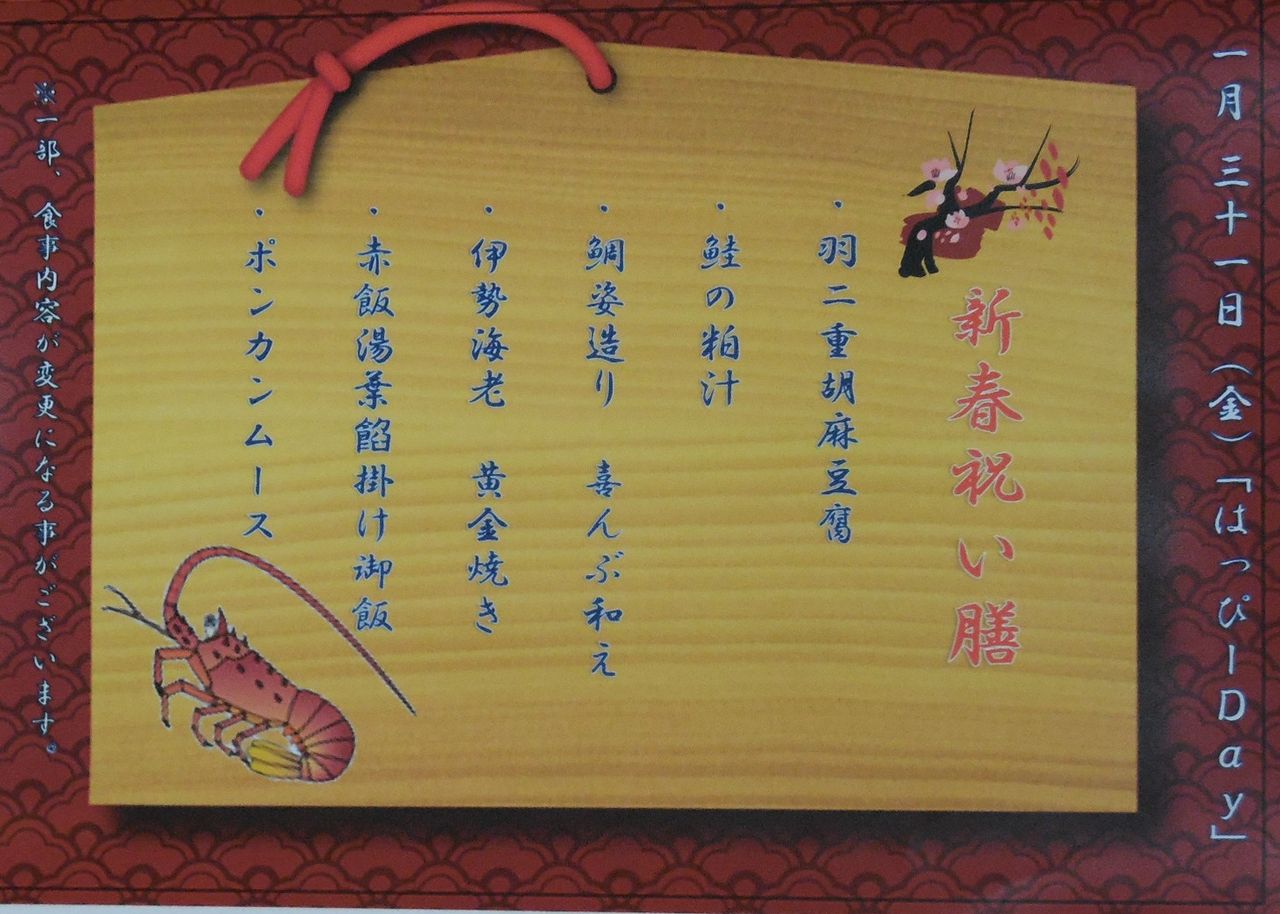 一月 三十一日（金）「はっぴーDay」
新春祝い膳
・羽二重胡麻豆腐
・鮭の粕汁
・鯛姿造り 喜んぶ和え
・伊勢海老 黄金焼き
・赤飯湯葉餡掛け御飯
・ポンカンムース
※一部、食事内容が変更になる事がございます。